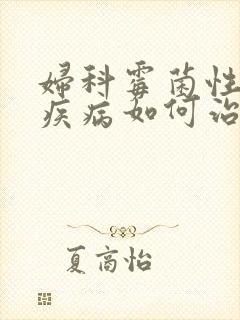 婦科霉菌性
疾病如何治
夏高怡